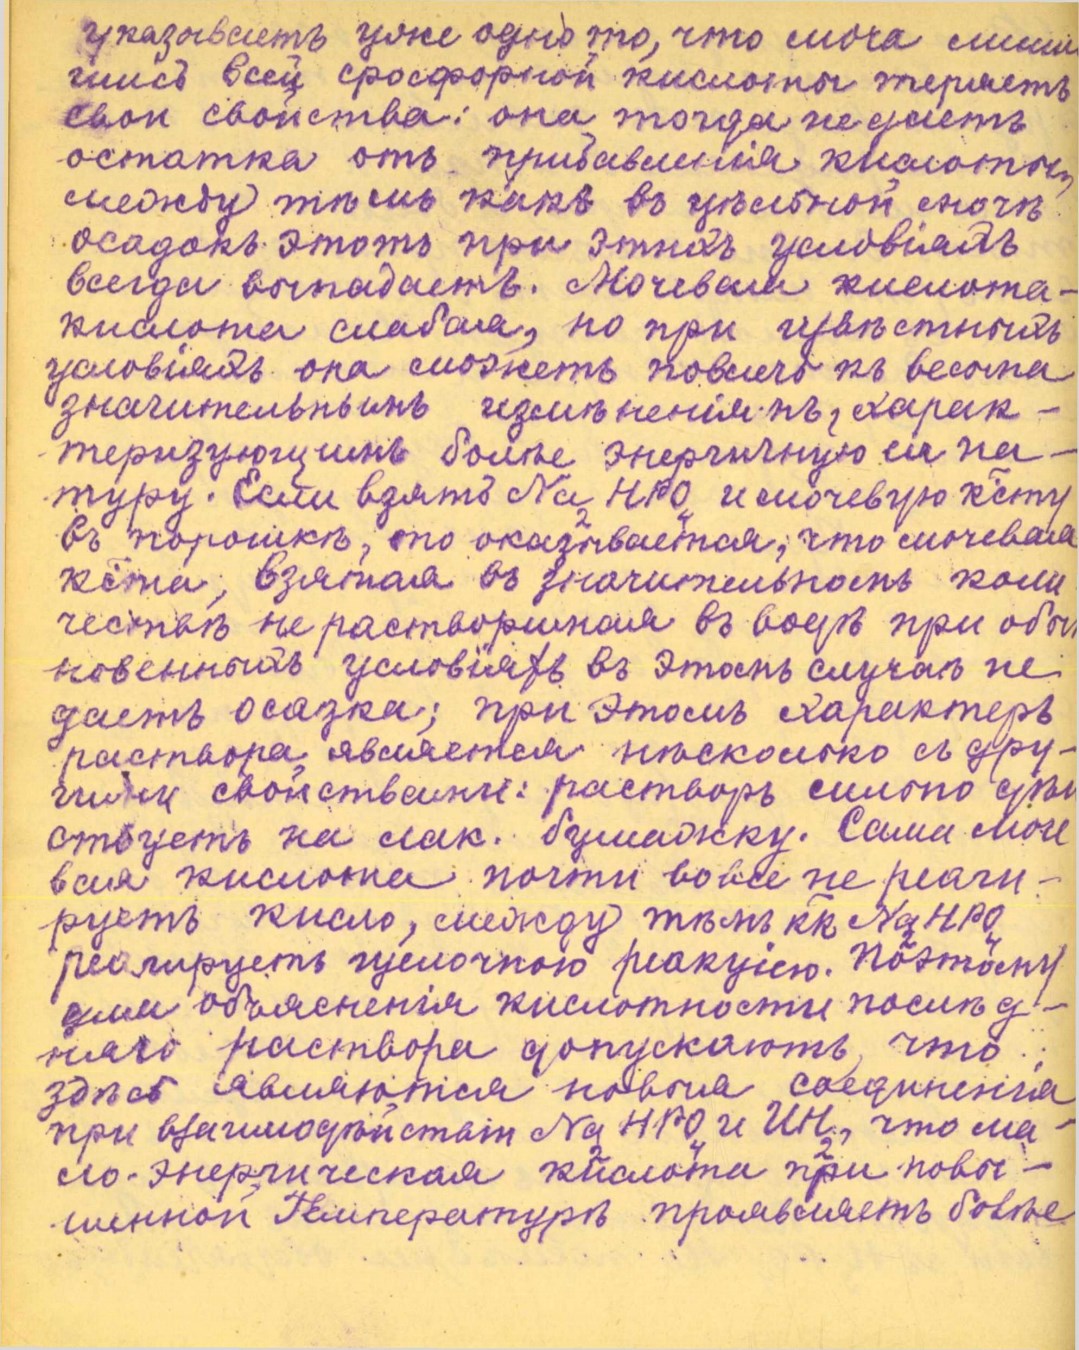 указываетъ уже одно то, что моча лиши
шись всей фосфорной кислоты теряетъ
свои свойства: она тогда не даетъ
остатка отъ прибавленія кислоты,
между тѣмъ какъ въ цѣльной мочѣ
осадокъ этотъ при этихъ условіяхъ
всегда выпадаетъ. Мочевая кислота –
кислота слабая, но при извѣстныхъ
условіяхъ она можетъ повлечь къ весьма
значительнымъ измѣненіямъ, харак-
теризующимъ болѣе энергичную ея на-
туру. Если взять Na₂HPO₄ и мочевую к̃сту
въ порошкѣ, то оказывается, что мочевая
к̃ста, взятая въ значительномъ коли
чествѣ не растворимая въ водѣ при обык
новенныхъ условіяхъ въ этомъ случаѣ не
даетъ осадка; при этомъ характеръ
раствора является нѣсколько съ дру-
гими свойствами: растворъ сильно дѣй
ствуетъ на лак. бумажку. Сама моче
вая кислота почти вовсе не реаги-
руетъ кисло, между тѣмъ к̃к Na₂HPO₄
реагируетъ щелочною реакціею. Поэтому
для объясненія кислотности послѣд-
няго раствора допускаютъ, что
здѣсь являются новыя соединенія
при взаимодѣйствіи Na₂HPO₄ и ИН₂, что ма-
ло-энергическая кислота при повы-
шенной температурѣ проявляетъ болѣе